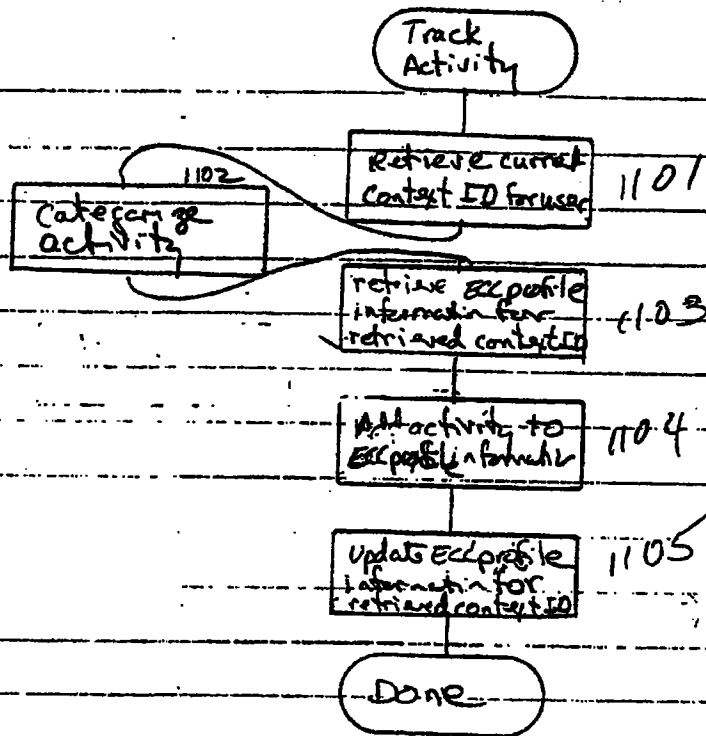 Track
Activity
Retrieve current
Context ID for user
1101
1102
Categorize
activity
retrieve ECC profile
information for
retrieved context ID
1103
Add activity to
ECC profile information
1104
update ECC profile
information for
retrieved context ID
1105
Done